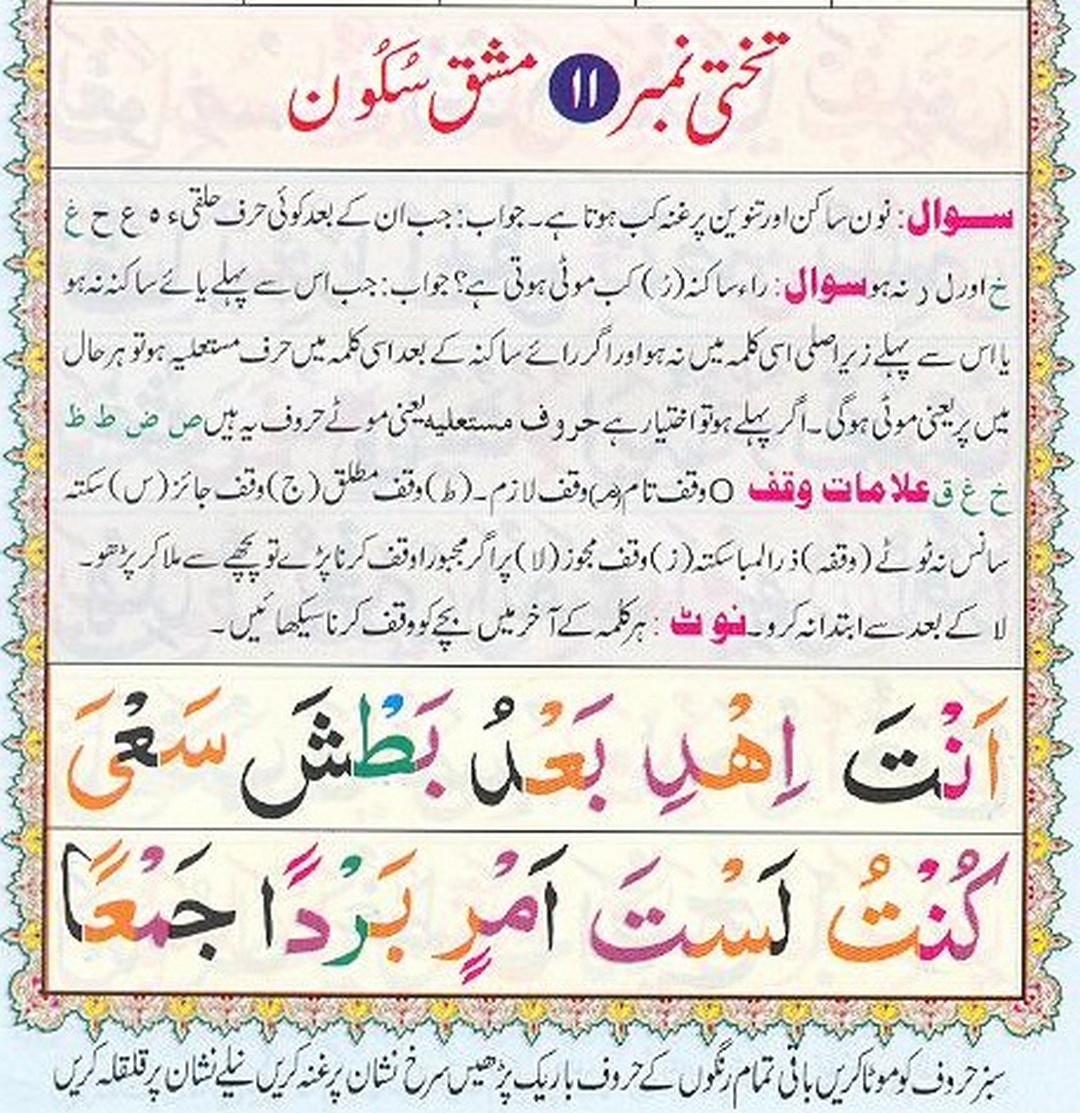 تختی نمبر ۱۱ مشق سُکُون
سوال: نون ساکن اور تنوین پر غنہ کب ہوتا ہے۔ جواب: جب ان کے بعد کوئی حرف حلقی ء ہ ع ح غ
خ اور ل ر نہ ہو سوال: راء ساکنہ (رْ) کب موٹی ہوتی ہے؟ جواب: جب اس سے پہلے یائے ساکنہ نہ ہو
یا اس سے پہلے زیر اصلی اسی کلمہ میں نہ ہو اور اگر رائے ساکنہ کے بعد اسی کلمہ میں حرف مستعلیہ ہو تو ہر حال
میں پر یعنی موٹی ہوگی۔ اگر پہلے ہو تو اختیار ہے حروف مستعلیہ یعنی موٹے حروف یہ ہیں ص ض ط ظ
خ غ ق علامات وقف O وقف تام (مـ) وقف لازم۔ (ط) وقف مطلق (ج) وقف جائز (س) سکتہ
سانس نہ ٹوٹے (وقفہ) ذرا لمبا سکتہ (ز) وقف مجوز (لا) پر اگر مجبورا وقف کرنا پڑے تو پچھے سے ملا کر پڑھو۔
لا کے بعد سے ابتدا نہ کرو۔ نوٹ: ہر کلمہ کے آخر میں بچے کو وقف کرنا سیکھائیں۔
اَنْتَ اِهْدِ بَعْدُ بَطْشَ سَعْیَ
كُنْتُ لَسْتَ اَمْرٍ بَرْدًا جَمْعًا
سبز حروف کو موٹا کریں باقی تمام رنگوں کے حروف باریک پڑھیں سرخ نشان پر غنہ کریں نیلے نشان پر قلقلہ کریں